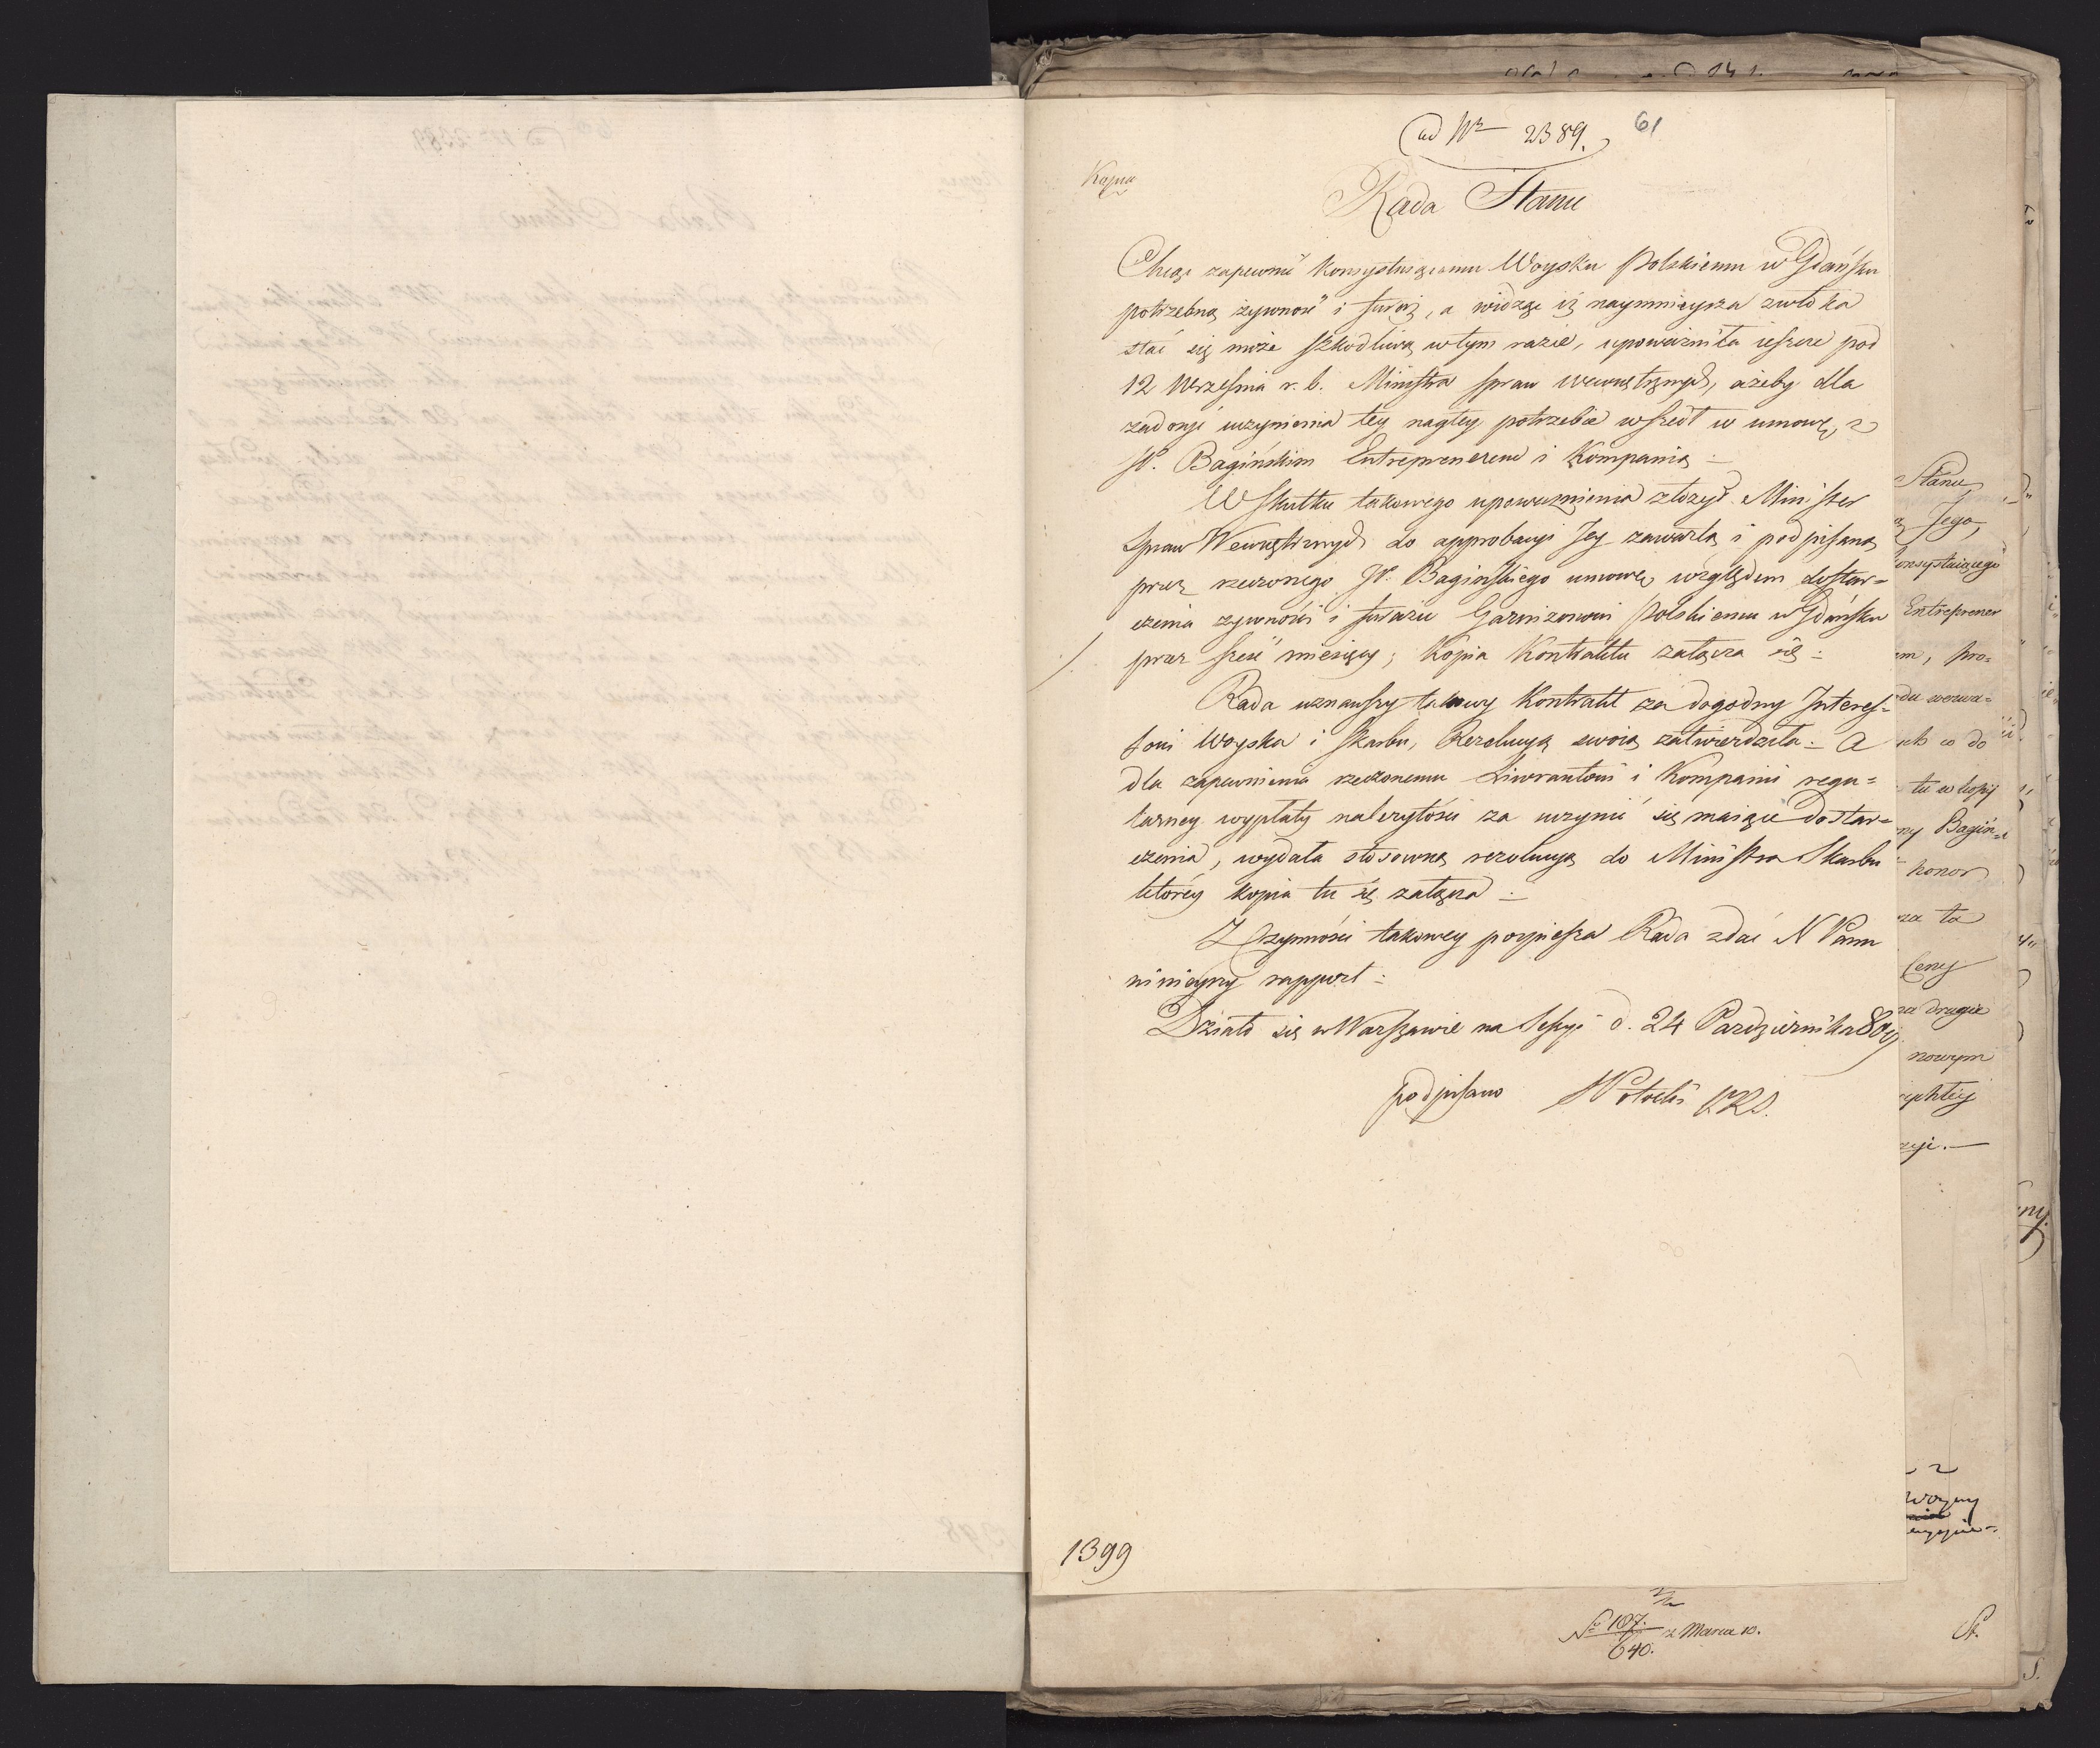 ad Nr 2389.
61
Kopia
Rada Stanu
Chcąc zapewnić konsystuiącemu Woysku Polskiemu w Gdańsku
potrzebną żywność i furaż, a widząc iż naymnieysza zwłoka
stać się może szkodliwą w tym razie, upoważniła ieszcze pod
12 Września r. b. Ministra spraw wewnętrznych, ażeby dla
zadosyć uczynienia tey nagłey potrzebie wszedł w umowę z
JP. Bagińskim Entreprenerem i Kompanią :
W skutku takowego upoważnienia złożył Minister
Spraw Wewnętrznych do approbacyi Jey zawartą i podpisaną
przez rzeczonego JP. Bagińskiego umowę względem dostar=
czenia żywności i furażu Garnizonowi Polskiemu w Gdańsku
przez sześć miesięcy; kopia Kontraktu załącza się :
Rada uznawszy takowy Kontrakt za dogodny Interes=
sowi Woyska i Skarbu, Rezolucyą swoią zatwierdziła :. A
dla zapewnienia rzeczonemu Liwrantowi i Kompanii regu=
larney wypłaty należytości za uczynić się maiące dostar=
czenia, wydała stosowną rezolucyą do Ministra Skarbu
którey kopia tu się załącza :
Z Czynności takowey pospiesza Rada zdać N Panu
ninieyszy rapport :
Działo się w Warszawie na Sessyi d. 24 Pazdziernika 809
podpisano S Potocki PRS.
1399
Stanu,
Jego,
konsystuiącego
Entreprener
em, pro=
wezwa=
co do
tu w kopij
ny Bagiń=
honor
za ta
Ceny
za drugie
nowym
cyi.—
No 187.
640.
z Marca 10.
St.